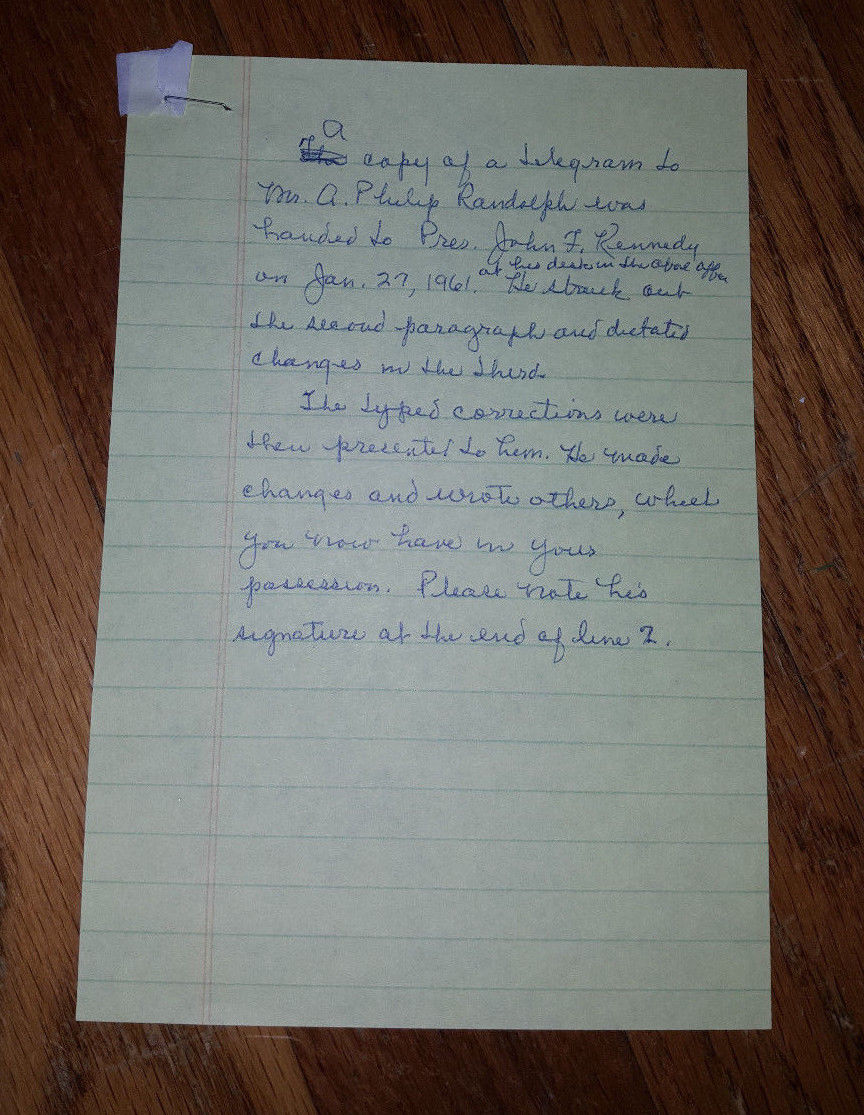 A
The copy of a telegram to
Mr. A. Philip Randolph was
handed to Pres. John F. Kennedy
at his desk in the oval office
on Jan. 27, 1961. He struck out
the second paragraph and dictated
changes in the third.
The typed corrections were
then presented to him. He made
changes and wrote others, which
you now have in your
possession. Please note his
signature at the end of line 2.